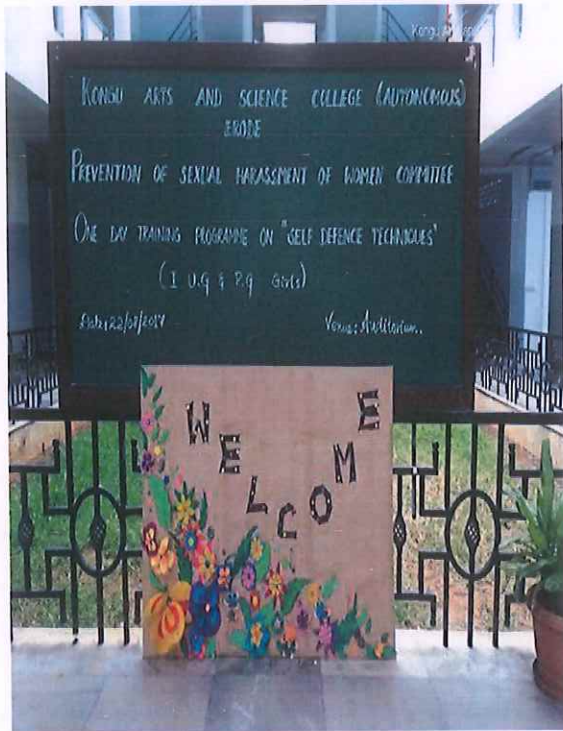 KONGU ARTS AND SCIENCE COLLEGE (AUTONOMOUS)
ERODE
PREVENTION OF SEXUAL HARASSMENT OF WOMEN COMMITTEE
ONE DAY TRAINING PROGRAMME ON "SELF DEFENCE TECHNIQUES"
(I U.G & P.G Girls)
Date: 22/08/2017 Venue: Auditorium..
WELCOME